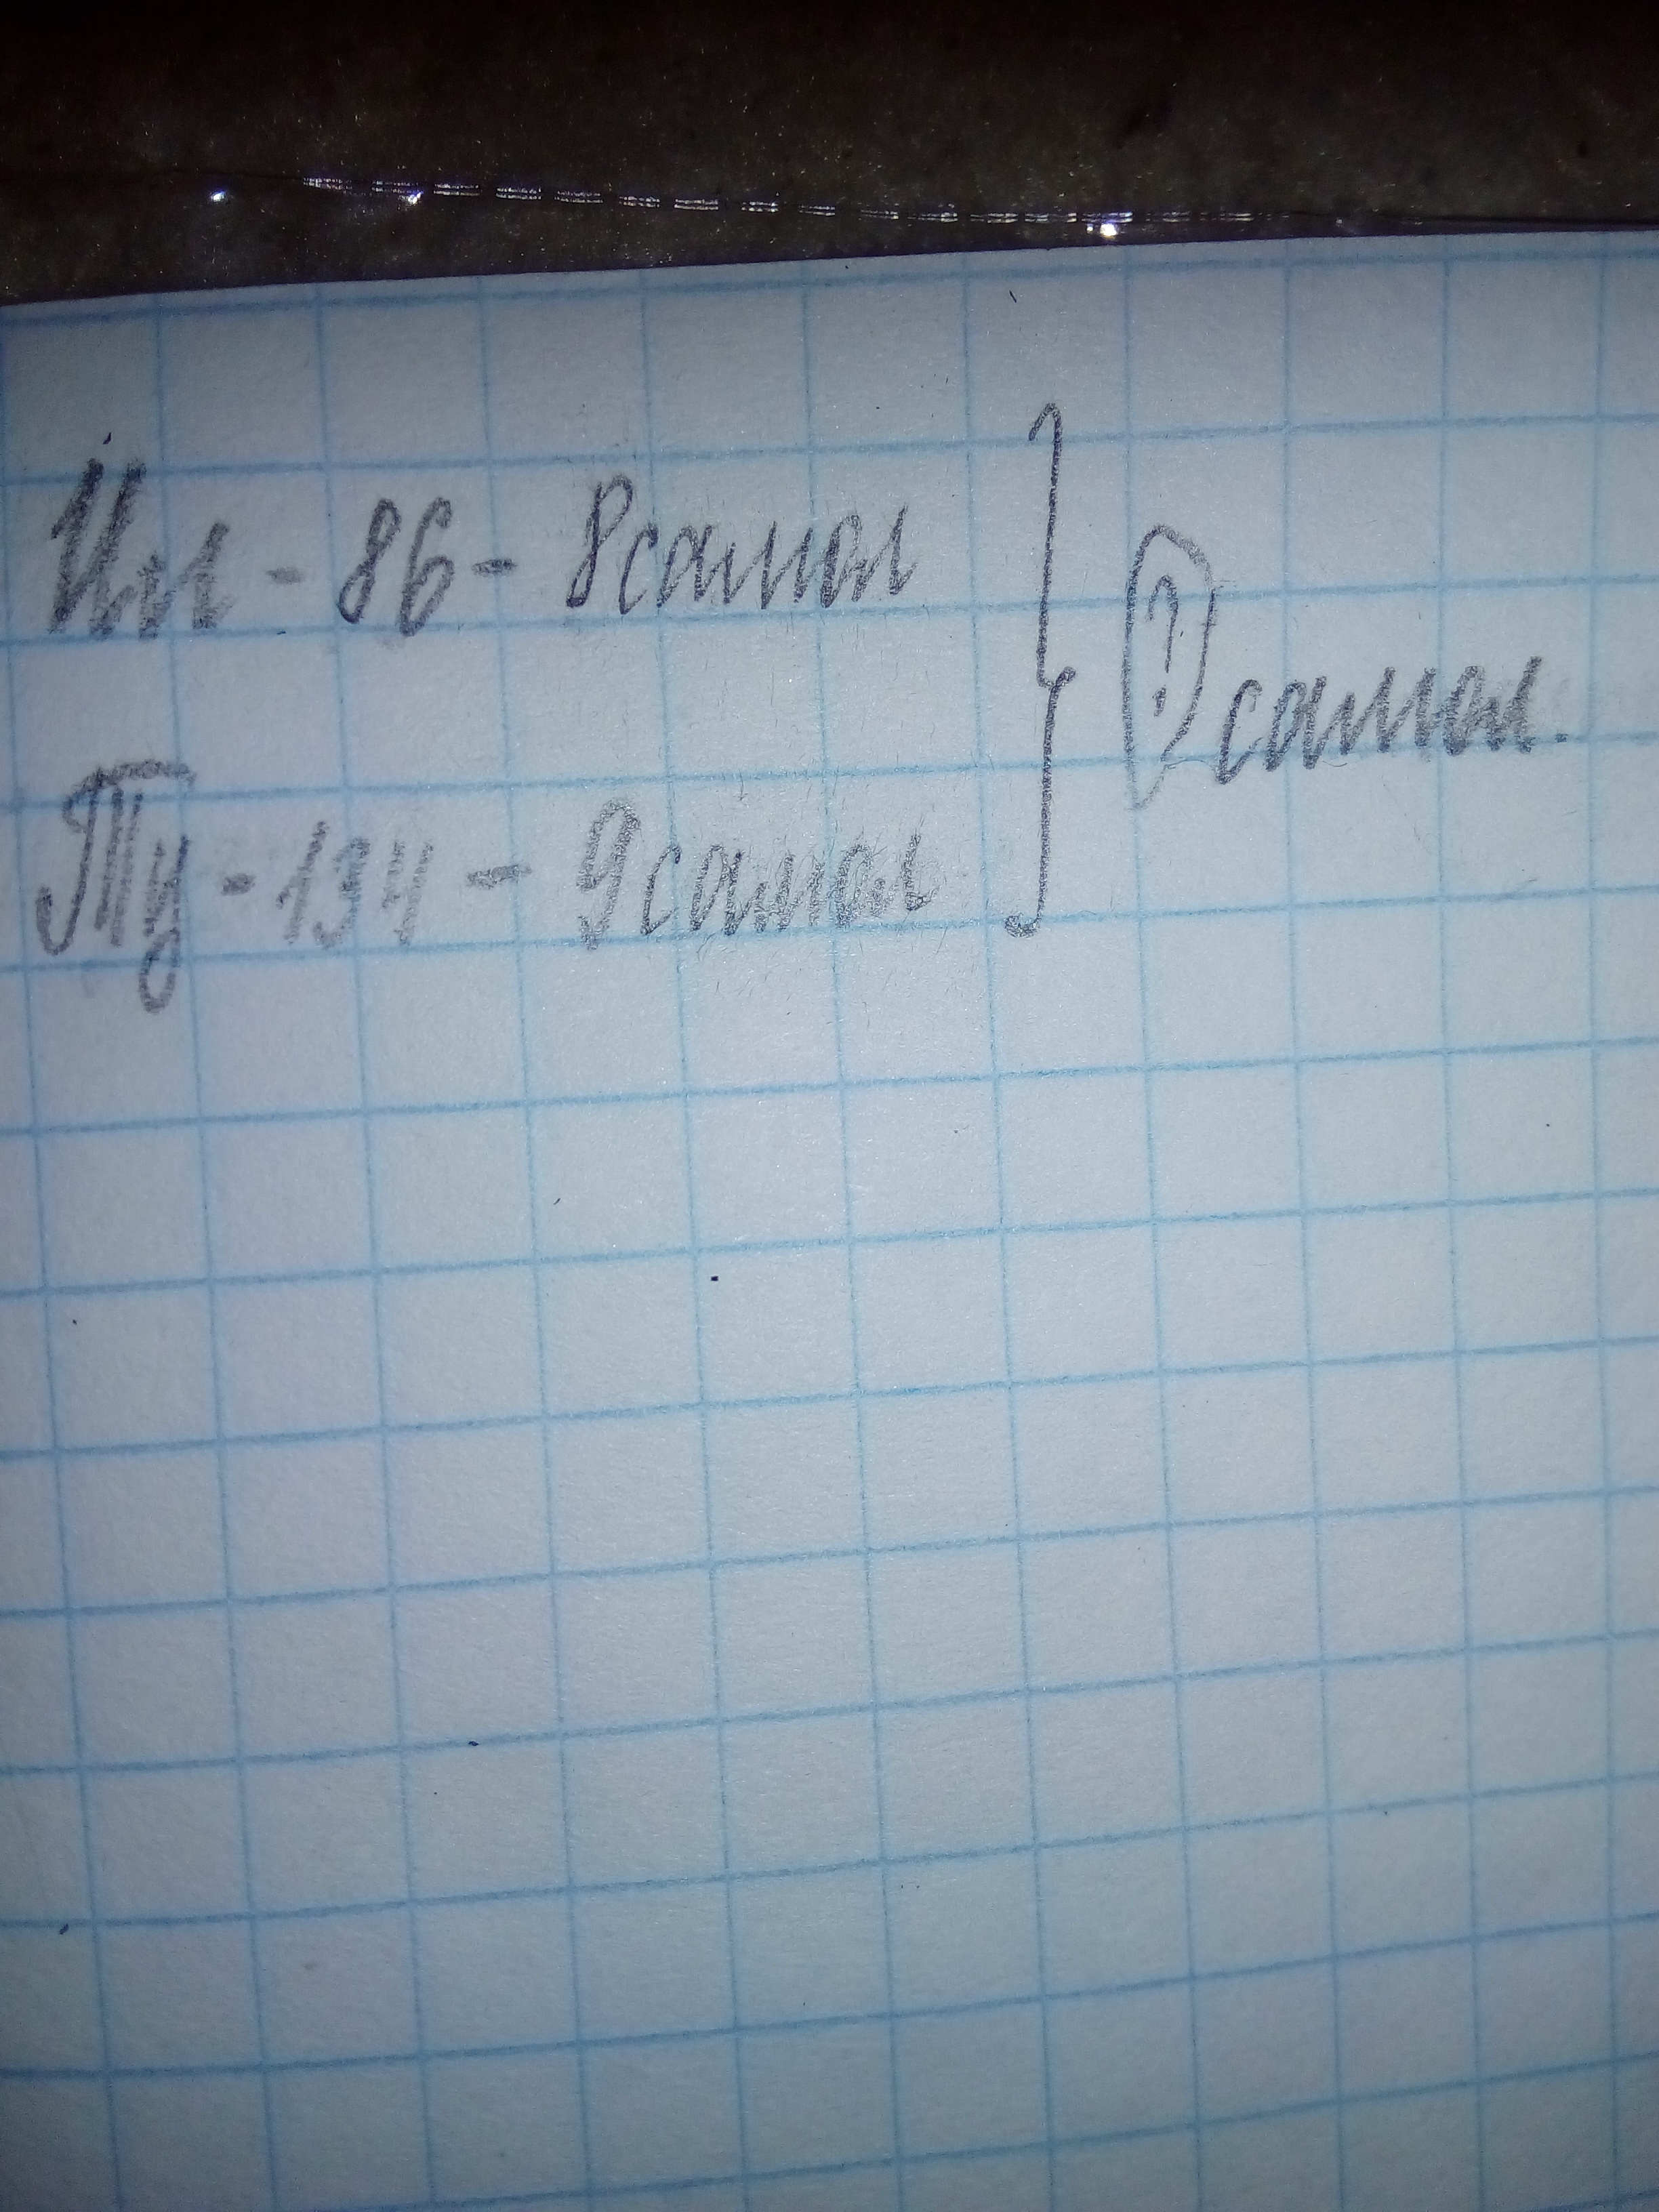 Ил - 86 - 8 самол
? самол.
Ту - 134 - 9 самол